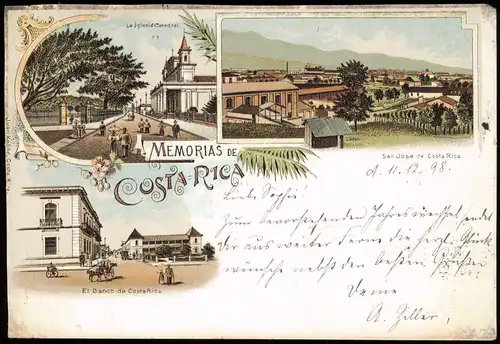 La Iglesia Catedral.
MEMORIAS DE
COSTA-RICA
San José de Costa Rica.
El Banco de Costa Rica.
d. 11. 12. 98.
Liebe Sophie!
Zum bevorstehenden Jahreswechsel sendet
Dir aus weiter Ferne die herzl. Glück
wünsche nebst den besten Grüßen
Deine
A. Ziller.